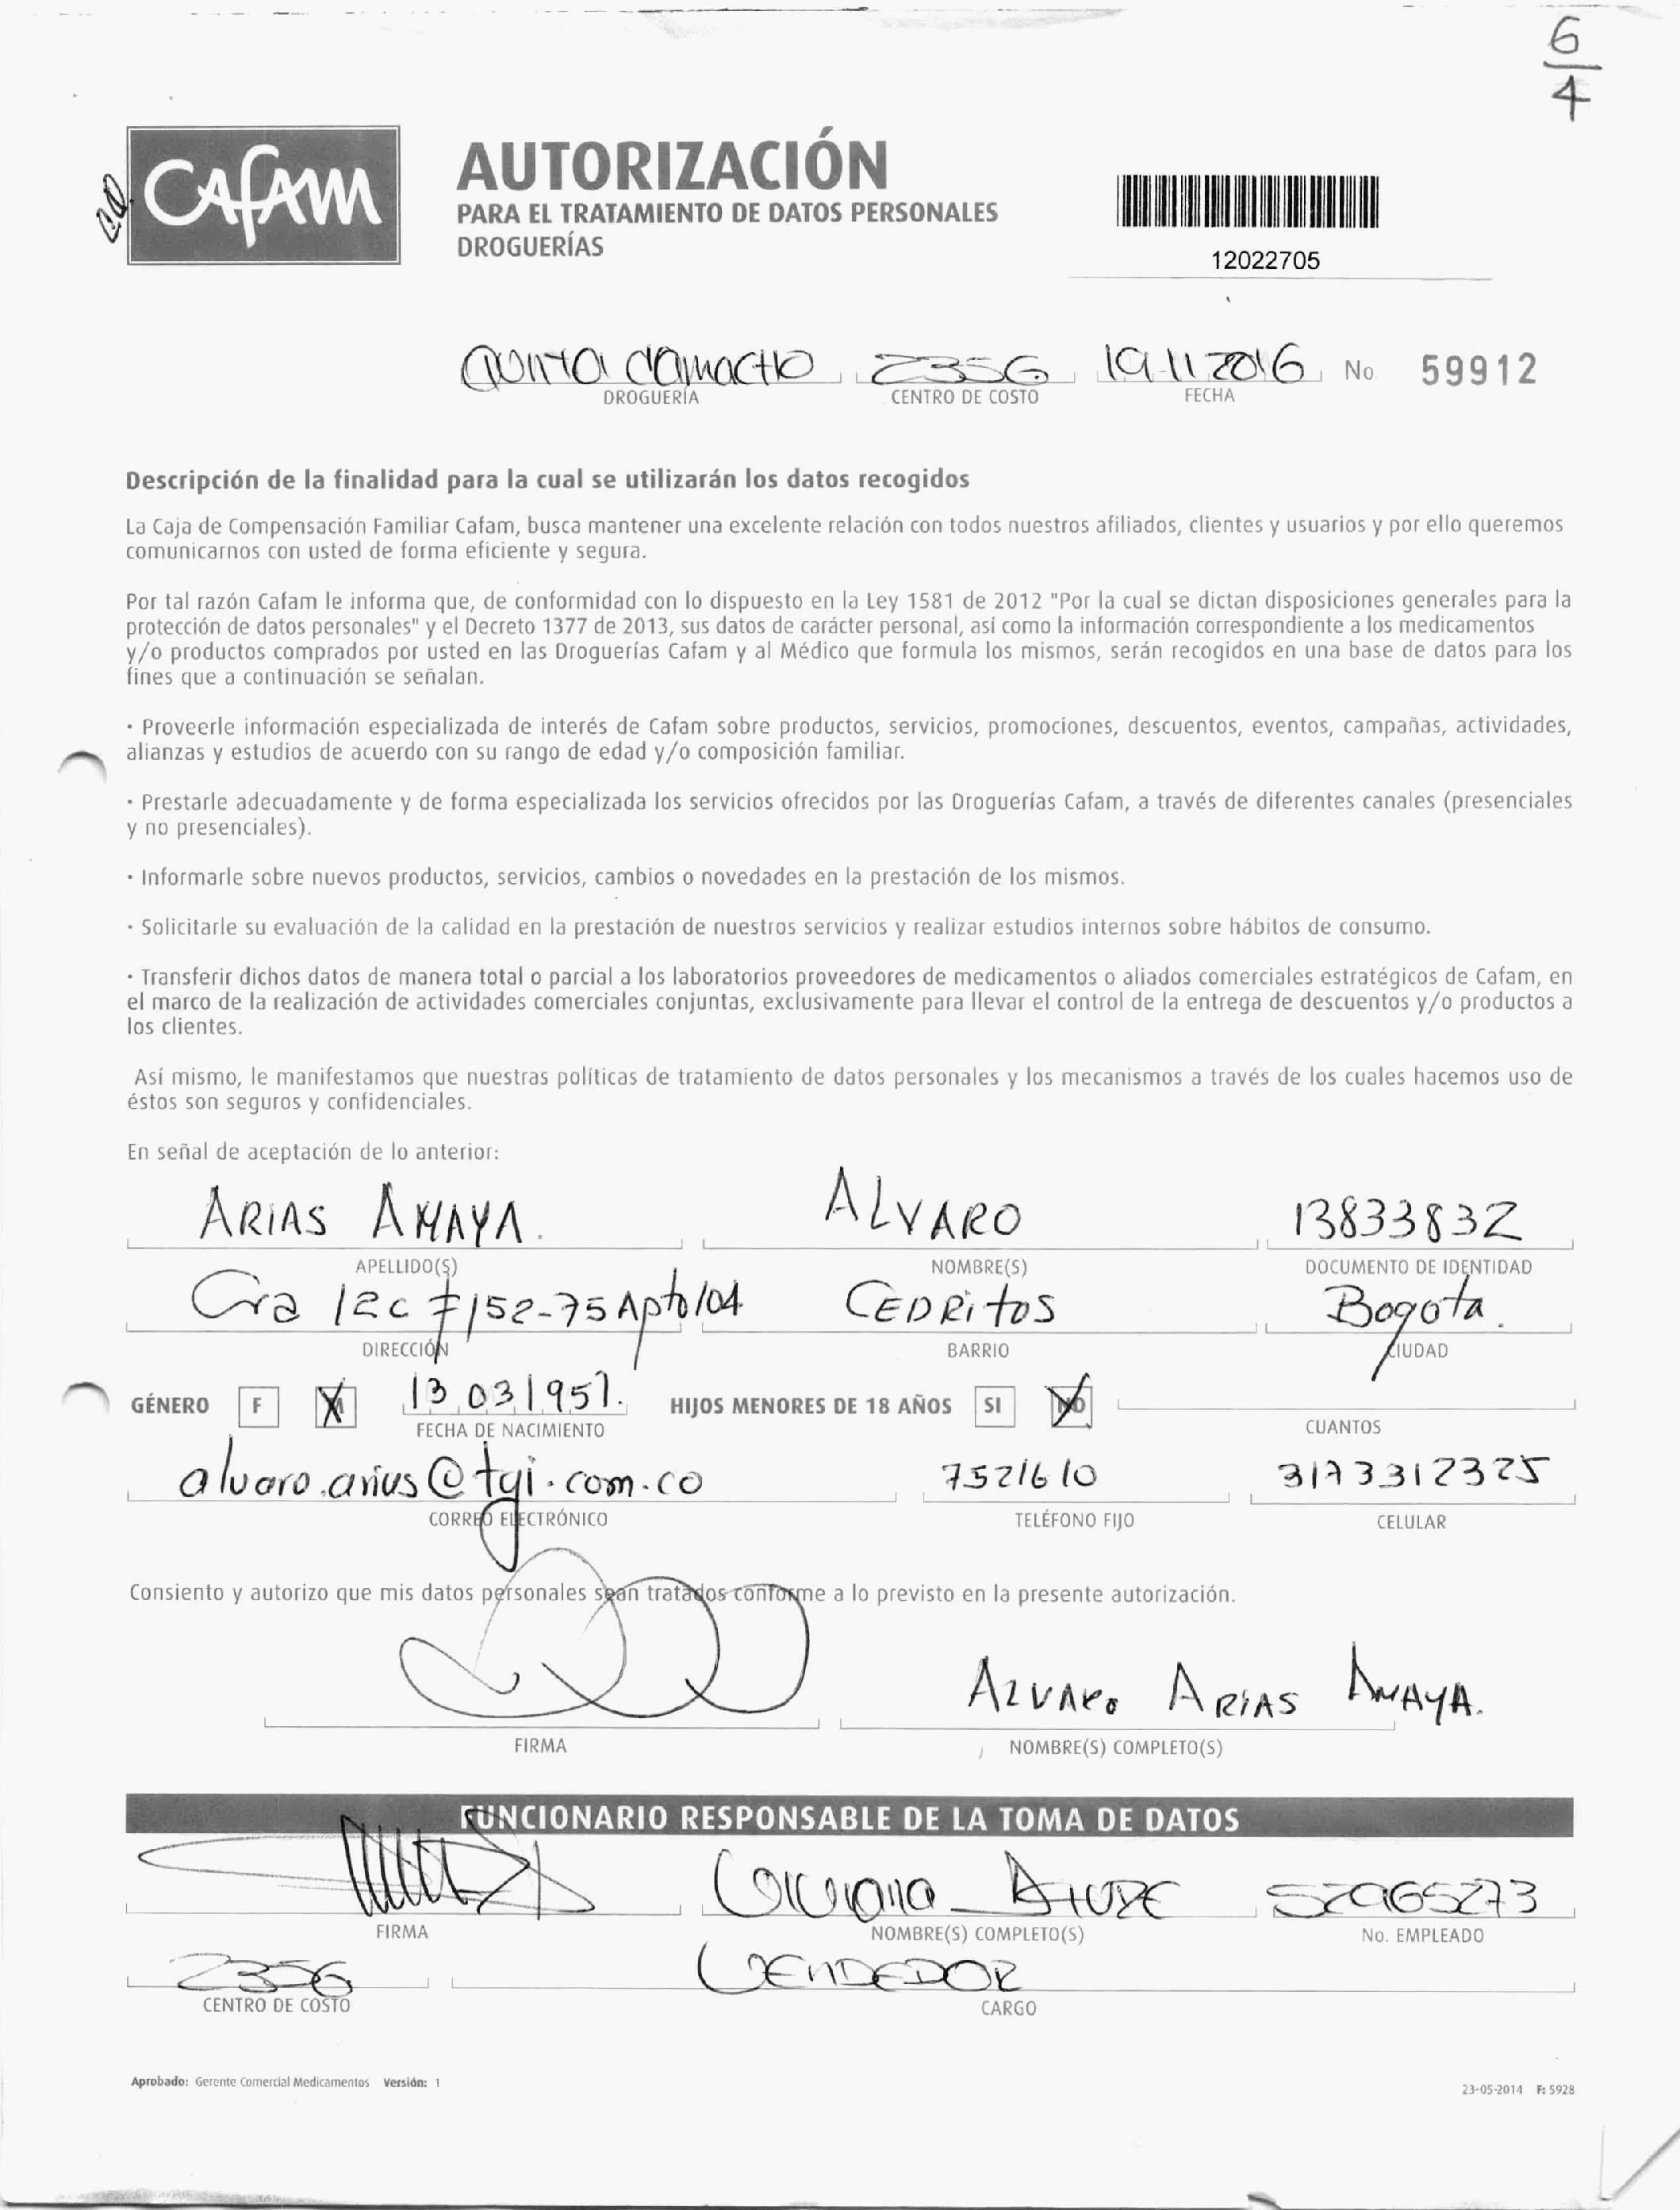 6
4
CAFAM
AUTORIZACIÓN
PARA EL TRATAMIENTO DE DATOS PERSONALES
DROGUERÍAS
12022705
QUINTA CAMACHO 2356 19 11 2016 No. 59912
DROGUERÍA CENTRO DE COSTO FECHA
Descripción de la finalidad para la cual se utilizarán los datos recogidos
La Caja de Compensación Familiar Cafam, busca mantener una excelente relación con todos nuestros afiliados, clientes y usuarios y por ello queremos
comunicarnos con usted de forma eficiente y segura.
Por tal razón Cafam le informa que, de conformidad con lo dispuesto en la Ley 1581 de 2012 "Por la cual se dictan disposiciones generales para la
protección de datos personales" y el Decreto 1377 de 2013, sus datos de carácter personal, así como la información correspondiente a los medicamentos
y/o productos comprados por usted en las Droguerías Cafam y al Médico que formula los mismos, serán recogidos en una base de datos para los
fines que a continuación se señalan.
· Proveerle información especializada de interés de Cafam sobre productos, servicios, promociones, descuentos, eventos, campañas, actividades,
alianzas y estudios de acuerdo con su rango de edad y/o composición familiar.
· Prestarle adecuadamente y de forma especializada los servicios ofrecidos por las Droguerías Cafam, a través de diferentes canales (presenciales
y no presenciales).
· Informarle sobre nuevos productos, servicios, cambios o novedades en la prestación de los mismos.
· Solicitarle su evaluación de la calidad en la prestación de nuestros servicios y realizar estudios internos sobre hábitos de consumo.
· Transferir dichos datos de manera total o parcial a los laboratorios proveedores de medicamentos o aliados comerciales estratégicos de Cafam, en
el marco de la realización de actividades comerciales conjuntas, exclusivamente para llevar el control de la entrega de descuentos y/o productos a
los clientes.
Así mismo, le manifestamos que nuestras políticas de tratamiento de datos personales y los mecanismos a través de los cuales hacemos uso de
éstos son seguros y confidenciales.
En señal de aceptación de lo anterior:
ARIAS AMAYA. ALVARO 13833832
APELLIDO(S) NOMBRE(S) DOCUMENTO DE IDENTIDAD
Cra 12c # 152-75 Apto 104 CEDRitos Bogota.
DIRECCIÓN BARRIO CIUDAD
GÉNERO F M 13 03 1951. HIJOS MENORES DE 18 AÑOS SI NO
FECHA DE NACIMIENTO CUANTOS
alvaro.arias@tgi.com.co 7521610 3173312325
CORREO ELECTRÓNICO TELÉFONO FIJO CELULAR
Consiento y autorizo que mis datos personales sean tratados conforme a lo previsto en la presente autorización.
ALVARO ARIAS AMAYA.
FIRMA NOMBRE(S) COMPLETO(S)
FUNCIONARIO RESPONSABLE DE LA TOMA DE DATOS
52965273
FIRMA NOMBRE(S) COMPLETO(S) No. EMPLEADO
2356 VENDEDOR
CENTRO DE COSTO CARGO
Aprobado: Gerente Comercial Medicamentos Versión: 1
23-05-2014 F: 5928